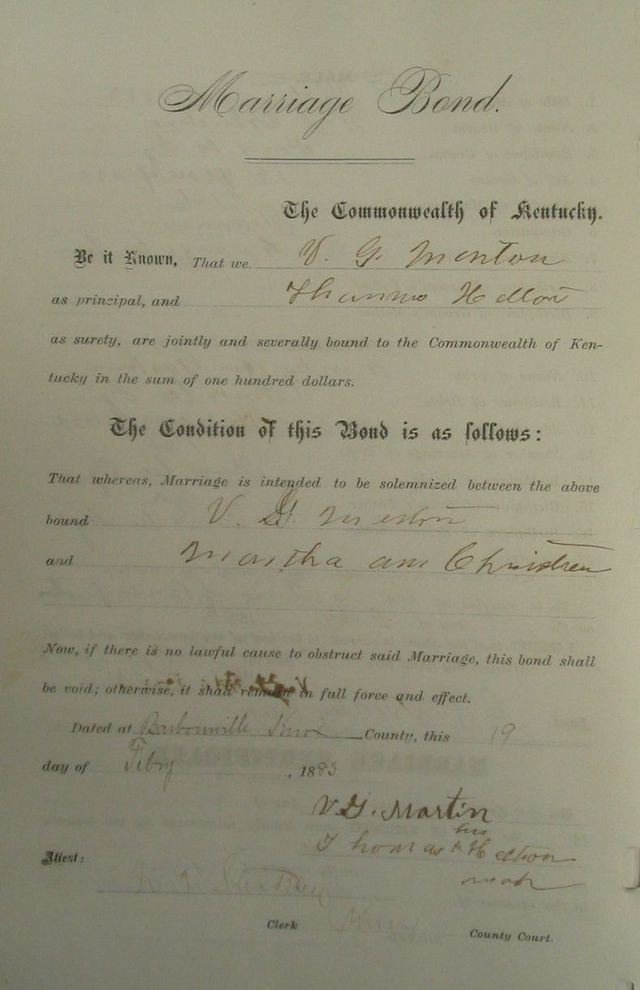 Marriage Bond.
The Commonwealth of Kentucky.
Be it Known, That we V. G. Marton
as principal, and Thomas Helton
as surety, are jointly and severally bound to the Commonwealth of Ken-
tucky in the sum of one hundred dollars.
The Condition of this Bond is as follows:
That whereas, Marriage is intended to be solemnized between the above
bound V. G.
and Martha ann
Now, if there is no lawful cause to obstruct said Marriage, this bond shall
be void; otherwise, it shall remain in full force and effect.
Dated at Barbourville Knox County, this 19
day of Feby, 1883
V. G. Martin
his
Thomas Helton
mark
Attest:
Clerk Knox County Court.